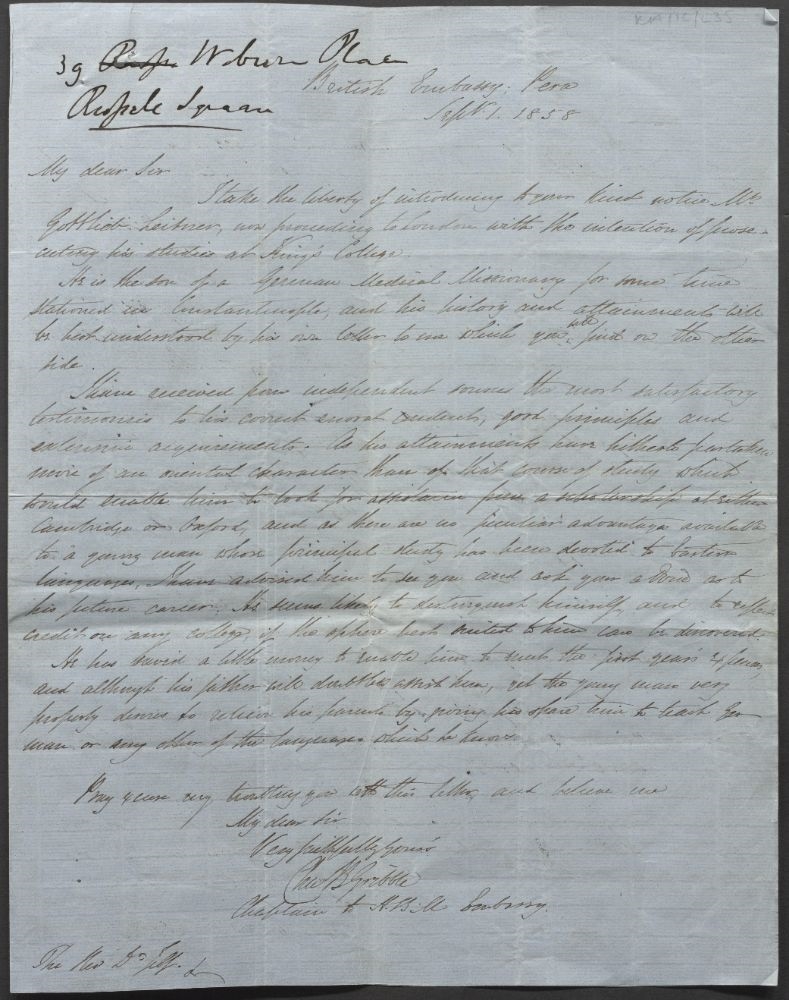 KA/IC/L35
39 Russ. Woburn Place
Russell Square
British Embassy; Pera
Septr. 1. 1858
My dear Sir
I take the liberty of introducing to your kind notice Mr.
Gottlieb Leitner, now proceeding to London with the intention of prose-
cuting his studies at King's College.
He is the son of a German Medical Missionary for some time
stationed in Constantinople, and his history and attainments will
be best understood by his own letter to me which you will find on the other
side.
I have received from independent sources the most satisfactory
testimonies to his correct moral conduct, good principles and
extensive acquirements. As his attainments have hitherto partaken
more of an oriental character than of that course of study which
would enable him to look for assistance from a scholarship at either
Cambridge or Oxford, and as there are no peculiar advantages available
to a young man whose principal study has been devoted to Eastern
languages, I have advised him to see you and ask your advice as to
his future career. He seems likely to distinguish himself, and to reflect
credit on any college, if the sphere best suited to him can be discovered.
He has saved a little money to enable him to meet the first year's expenses,
and although his father will doubtless assist him, yet the young man very
properly desires to relieve his parents by giving his spare time to teach Ger-
man or any other of the languages which he knows.
Pray excuse my troubling you with this letter, and believe me
My dear Sir
Very faithfully yours
Chas B Gribble
Chaplain to H.B.M. Embassy.
The Rev Dr. Jelf.